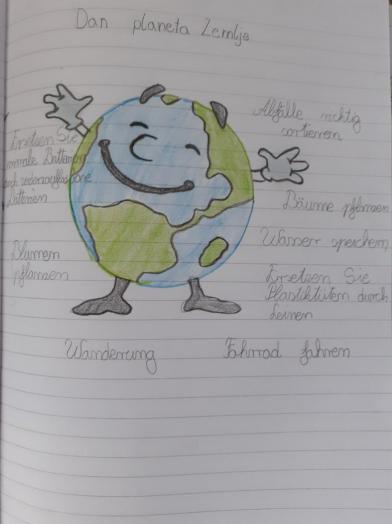 Dan planeta Zemlje
Abfälle richtig
sortieren
Ersetzen Sie
normale Batterien
durch wiederaufladbare
Batterien
Bäume pflanzen
Wasser speichern
Blumen
pflanzen
Ersetzen Sie
Plastiktüten durch
Leinen
Wanderung
Fahrrad fahren